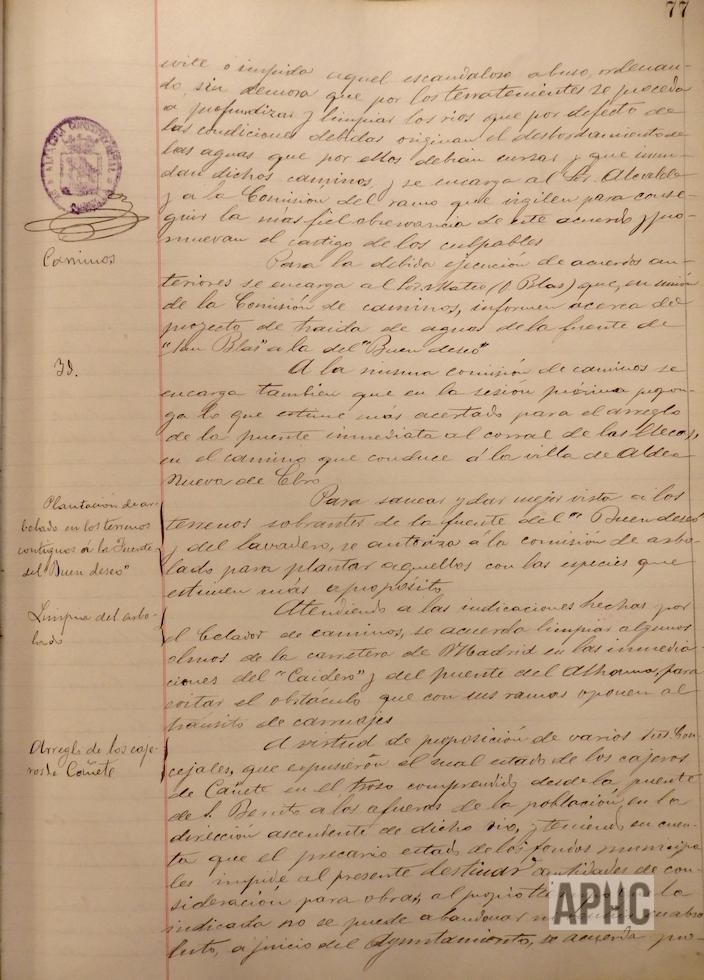 77
evite o impida aquel escandaloso abuso, ordenan-
do, sin demora que por los terratenientes se proceda
a profundizar y limpiar los rios que por defecto de
las condiciones debidas originan el desbordamiento de
las aguas que por ellos deban cursar y que inun-
dan dichos caminos, y se encarga al Sr. Alcalde
y a la Comisión del ramo que vigilen para conse-
guir la mas fiel observancia de este acuerdo y pro-
muevan el castigo de los culpables
Caminos
Para la debida ejecución de acuerdos an-
teriores se encarga al Sr. Mateo (D. Blas) que, en unión
de la Comisión de caminos, informen acerca del
proyecto de traida de aguas de la fuente de
"San Blas" a la del "Buen deseo"
Id.
A la misma comisión de caminos se
encarga tambien que en la sesión próxima propon-
ga lo que estime más acertado para el arreglo
de la puente inmediata al corral de las
en el camino que conduce á la villa de Aldea
Nueva de Ebro
Plantación de ar-
bolado en los terrenos
contiguos á la Fuente
del Buen deseo"
Para sanear y dar mejor vista a los
terrenos sobrantes de la fuente del "Buen deseo
y del lavadero, se autoriza á la comisión de arbo-
lado para plantar aquellos con las especies que
estimen más apropósito
Limpia del arbo-
lado
Atendiendo a las indicaciones hechas por
el Celador de caminos, se acuerda limpiar algunos
olmos de la carretera de Madrid en las inmedia-
ciones del "Caidero" y del puente del Alhama, para
evitar el obstáculo que con sus ramos oponen al
tránsito de carruajes
Arreglo de los caje-
ros de Cañete
A virtud de proposición de varios Sres Con-
cejales, que expusieron el mal estado de los cajeros
de Cañete en el trozo comprendido desde la puente
de S. Benito a los afueras de la población, en la
dirección ascendente de dicho rio, y teniendo en cuen-
ta que el precario estado de los fondos municipa
les impide al presente destinar cantidades de con-
sideración para obras, al propio la
indicada no se puede abandonar en abso
luto, a juicio del Ayuntamiento, se acuerda pro-
APHC